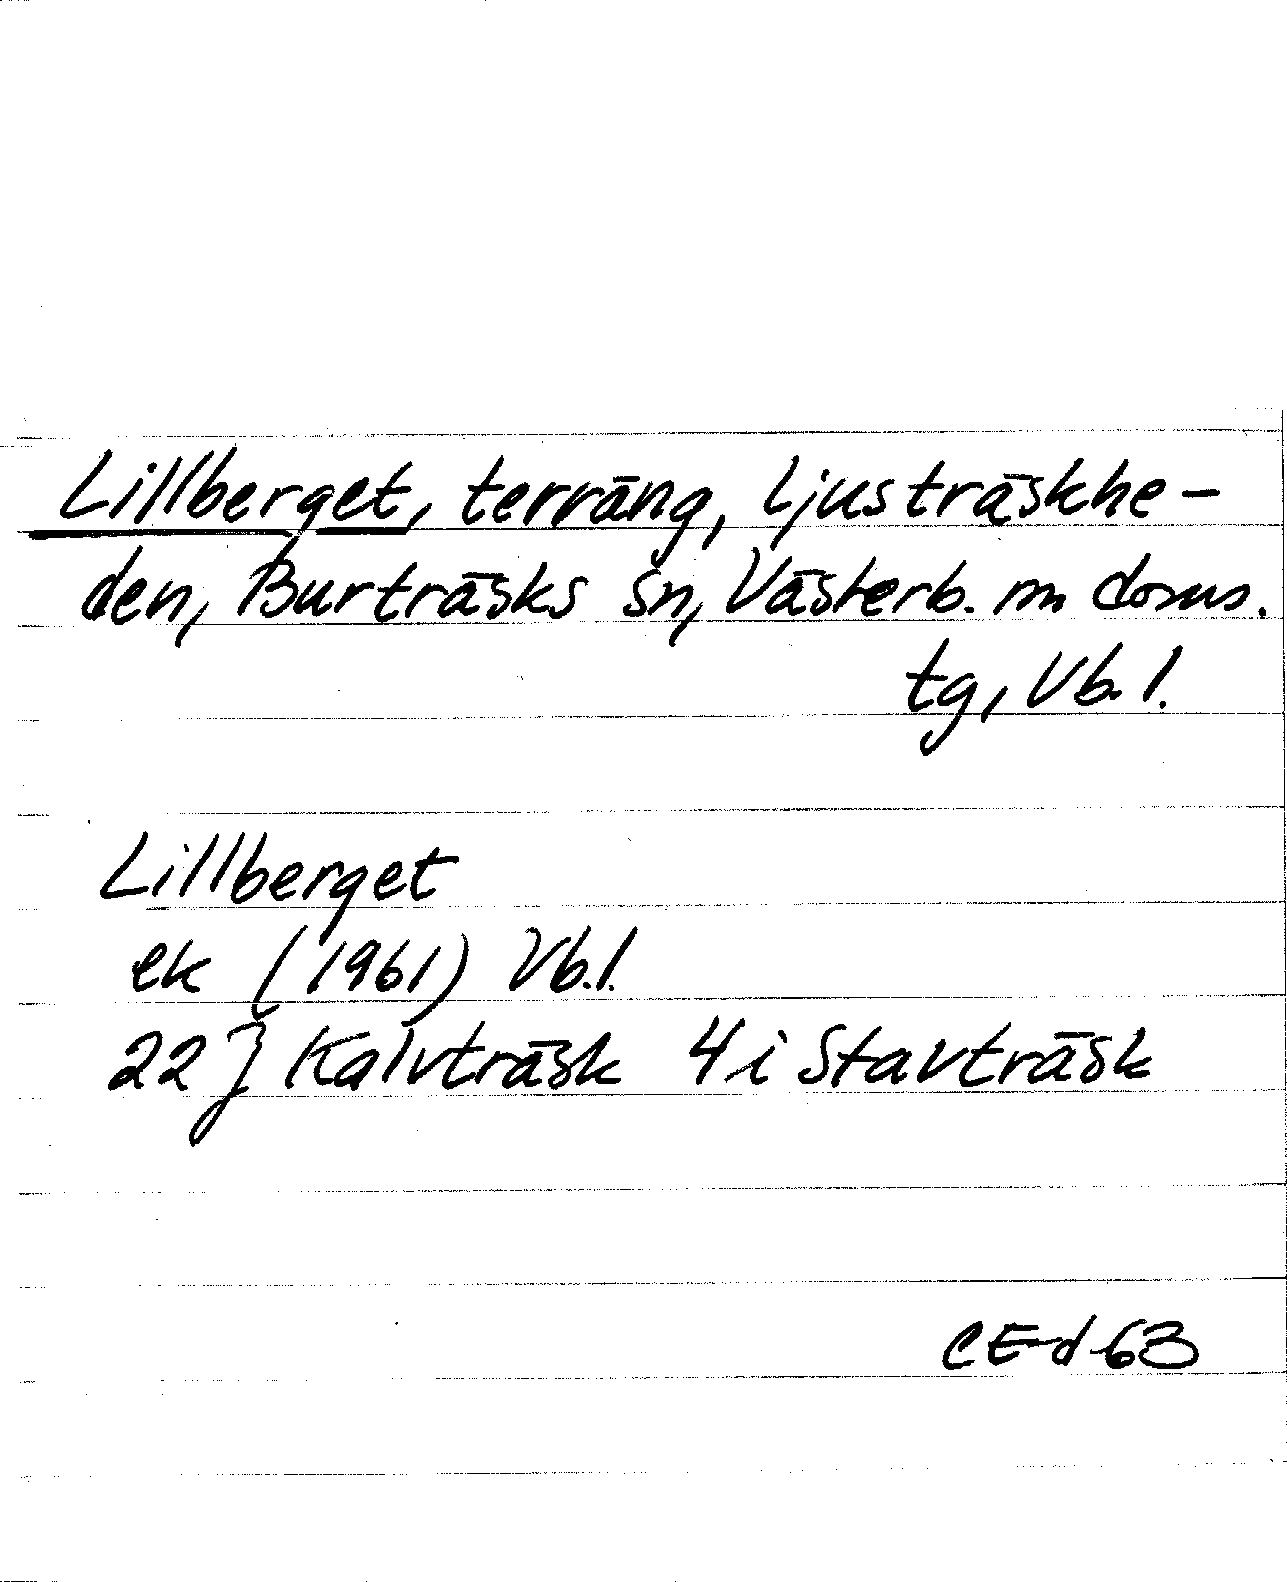 Lillberget, terräng, Ljusträskhe-
den, Burträsks sn, Västerb. m. doms.
tg, Vb. l.
Lillberget
ek (1961) Vb. l.
22 J Kalvträsk 4 i Stavträsk
CEd 63